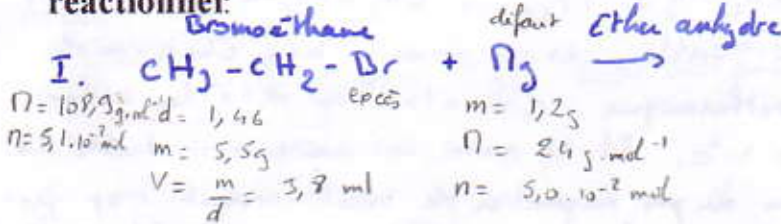 réactionnel.
Bromoéthane défaut Ether anhydre
I. CH3-CH2-Br + Mg ⟶
excès
M = 108,9 g.mol-1 d = 1,46 m = 1,2g
n = 5,1.10-2 mol m = 5,5g M = 24 g.mol-1
V = m/d = 3,8 ml n = 5,0.10-2 mol